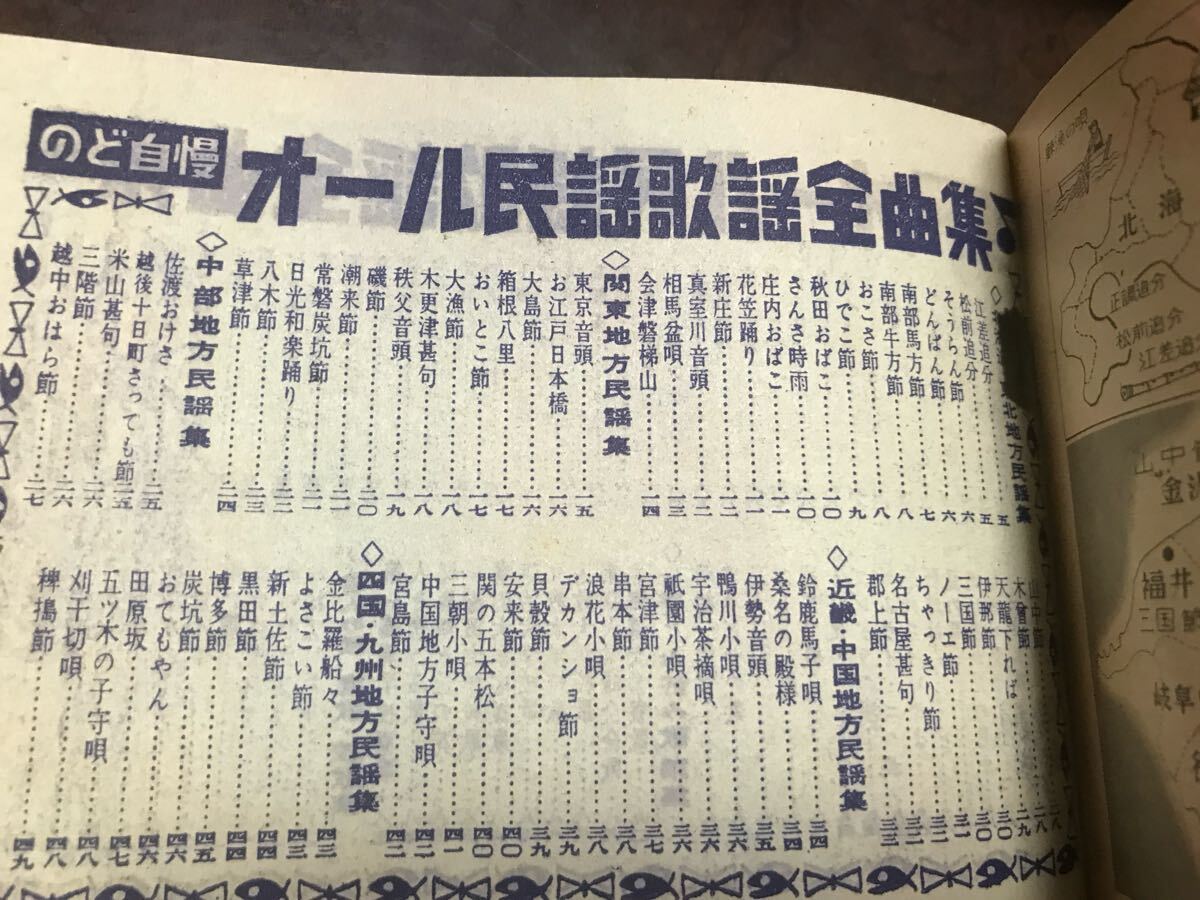 のど自慢
オール民謡歌謡全曲集
江差追分……五
松前追分……五
そうらん節……六
どんぱん節……七
南部馬方節……八
南部牛方節……八
おこさ節……九
ひでこ節……九
秋田おばこ……一〇
さんさ時雨……一〇
庄内おばこ……一一
花笠踊り……一一
新庄節……一二
真室川音頭……一二
相馬盆唄……一三
会津磐梯山……一四
◇関東地方民謡集
東京音頭……一五
お江戸日本橋……一六
大島節……一六
箱根八里……一七
おいとこ節……一七
大漁節……一八
木更津甚句……一八
秩父音頭……一九
磯節……二〇
潮来節……二一
常磐炭坑節……二一
日光和楽踊り……二二
八木節……二三
草津節……二四
◇中部地方民謡集
佐渡おけさ……二五
越後十日町さっても節……二五
米山甚句……二六
三階節……二六
越中おはら節……二七
山中節……二八
木曾節……二九
天龍下れば……三〇
伊那節……三〇
三国節……三一
ノーエ節……三一
ちゃっきり節
名古屋甚句
郡上節……三三
◇近畿・中国地方民謡集
鈴鹿馬子唄……三四
桑名の殿様……三四
伊勢音頭……三五
鴨川小唄
宇治茶摘唄……三六
祇園小唄……三六
宮津節……三七
串本節……三八
浪花小唄……三八
デカンショ節……三九
貝殻節……三九
安来節……四〇
関の五本松……四〇
三朝小唄……四一
中国地方子守唄……四二
宮島節……四二
◇四国・九州地方民謡集
金比羅船々……四三
よさこい節……四三
新土佐節……四四
黒田節……四四
博多節……四五
炭坑節……四六
おてもやん……四六
田原坂……四七
五ツ木の子守唄……四八
刈干切唄……四八
稗搗節……四九
北海
正調追分
松前追分
江差追分
山中
金沢
福井
三国節
岐阜